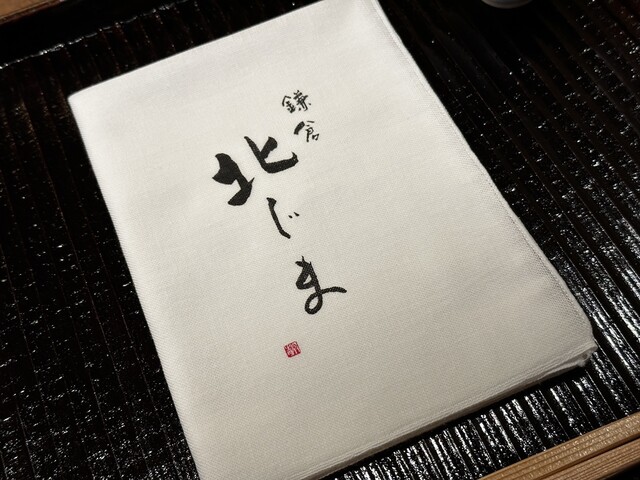 鎌倉
北じま